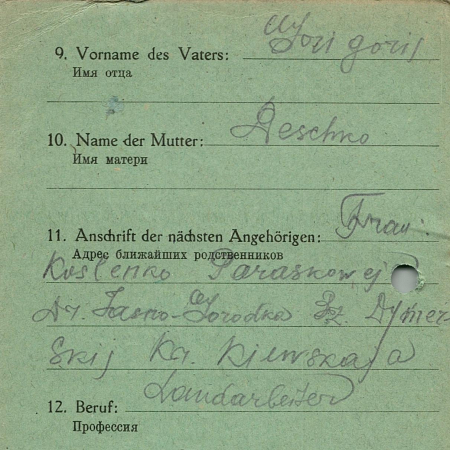 9. Vorname des Vaters: Grigoris
Имя отца
10. Name der Mutter: Leschko
Имя матери
11. Anschrift der nächsten Angehörigen: Frau:
Адрес ближайших родственников
Kuslenko Paraskowej
Dr. Jasno-Gorodka Bz. Dymer
Skij Kr. Kiewskaja
12. Beruf: Landarbeiter
Профессия